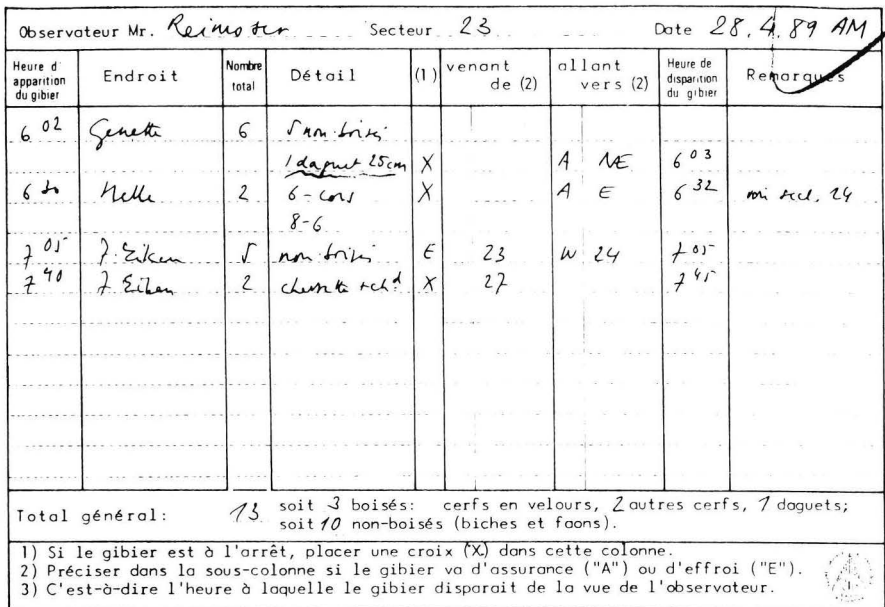 Observateur Mr. Reimoser Secteur 23 Date 28.4.89 AM
Heure d'apparition du gibier Endroit Nombre total Détail (1) venant de (2) allant vers (2) Heure de disparition du gibier Remarques
6 02 Genette 6 5 non boisés
1 daguet 25cm X A NE 6 03
6 30 Helle 2 6-cors X A E 6 32 24
8-6
7 05 7. Eiken 5 non boisés E 23 W 24 7 05
7 40 7 Eiken 2 X 27 7 45
Total général: 13 soit 3 boisés: cerfs en velours, 2 autres cerfs, 1 daguets;
soit 10 non-boisés (biches et faons).
1) Si le gibier est à l'arrêt, placer une croix (X) dans cette colonne.
2) Préciser dans la sous-colonne si le gibier va d'assurance ("A") ou d'effroi ("E").
3) C'est-à-dire l'heure à laquelle le gibier disparait de la vue de l'observateur.